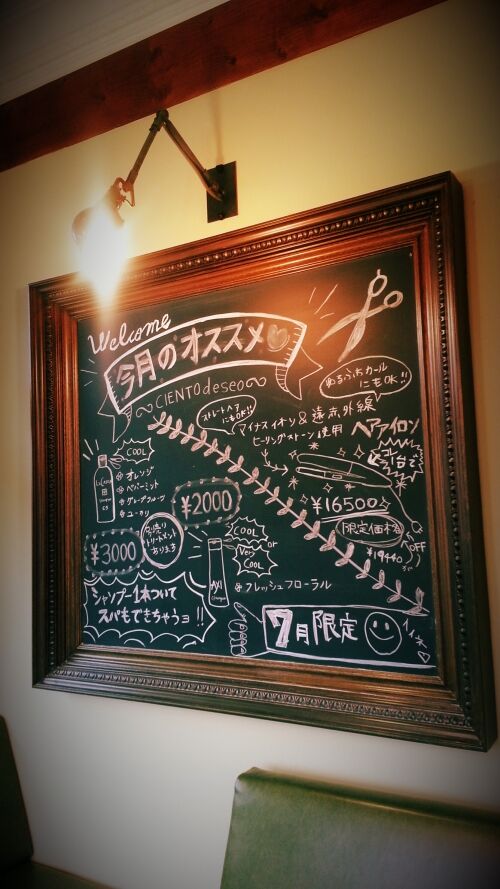 Welcome
今月のオススメ
～CIENTO deseo～
ゆるふわカール
にもOK!!
ストレートヘア
にもOK!!
マイナスイオン&遠赤外線
ヒーリングストーン使用
ヘアアイロン
コレ1台で
¥16500
限定価格
¥19440
OFF
COOL
オレンジ
ペパーミント
グレープフルーツ
ユーカリ
¥2000
¥3000
トリートメント
あります
シャンプー1本ついて
スパもできちゃうョ!!
COOL
or
Very
COOL
フレッシュフローラル
7月限定